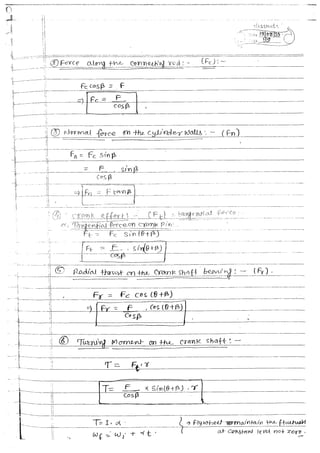 ② Force along the connecting rod :- (Fc):-
Fc cosβ = F
⇒ Fc = F / cosβ
③ Normal force on the cylinder walls :- (Fn)
Fn = Fc sinβ
= F / cosβ . sinβ
⇒ Fn = F tanβ
④ Crank effort :- (Ft) = tangential force
or Tangential force on crank pin
Ft = Fc sin(θ+β)
Ft = F / cosβ . sin(θ+β)
⑤ Radial thrust on the crank shaft bearing :- (Fr).
Fr = Fc cos(θ+β)
⇒ Fr = F / cosβ . cos(θ+β)
⑥ Turning Moment on the crank shaft :-
T = Ft.r
T = F / cosβ × sin(θ+β) . r
T = I. α
→ Flywheel maintain the
ωf = ωi + αt.
at constant level not zero.